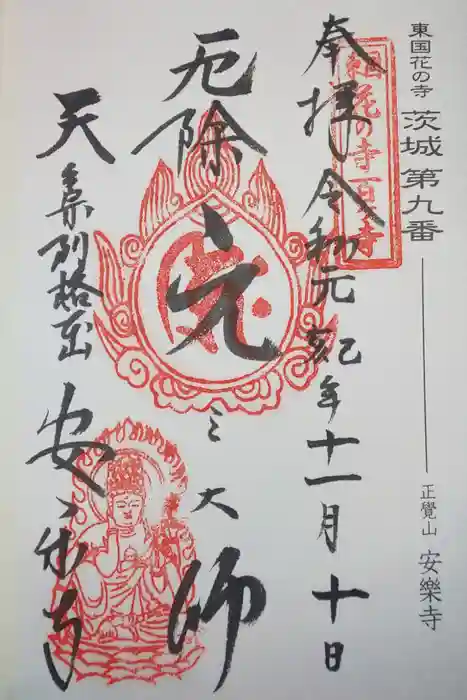 東国花の寺 茨城第九番 正覺山 安樂寺
東国花の寺百ヶ寺
奉拝 令和元己亥年十一月十日
厄除元三大師
天台宗別格本山 安樂寺